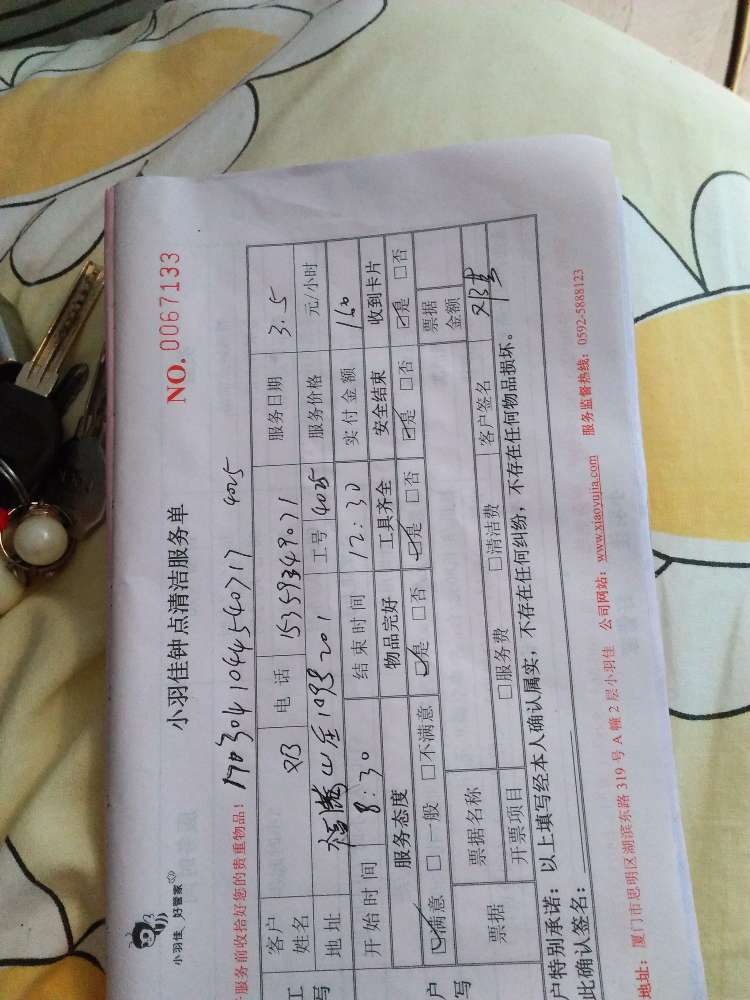 小羽佳 好管家
小羽佳钟点清洁服务单
NO. 0067133
服务前收拾好您的贵重物品！
170304104454 0717 4025
客户姓名 邓 电话 15359349071 服务日期 3.5
地址 山庄109号201 工号 4025 服务价格 元/小时
开始时间 8:30 结束时间 12:30 实付金额 160
服务态度 物品完好 工具齐全 安全结束 收到卡片
☑满意 □一般 □不满意 ☑是 □否 ☑是 □否 ☑是 □否 ☑是 □否
票据 票据名称 票据金额
开票项目 □服务费 □清洁费 客户签名 邓
户特别承诺：以上填写经本人确认属实，不存在任何纠纷，不存在任何物品损坏。
此确认签名：
地址：厦门市思明区湖滨东路 319 号 A 幢 2 层小羽佳 公司网站：www.xiaoyujia.com 服务监督热线：0592-5888123